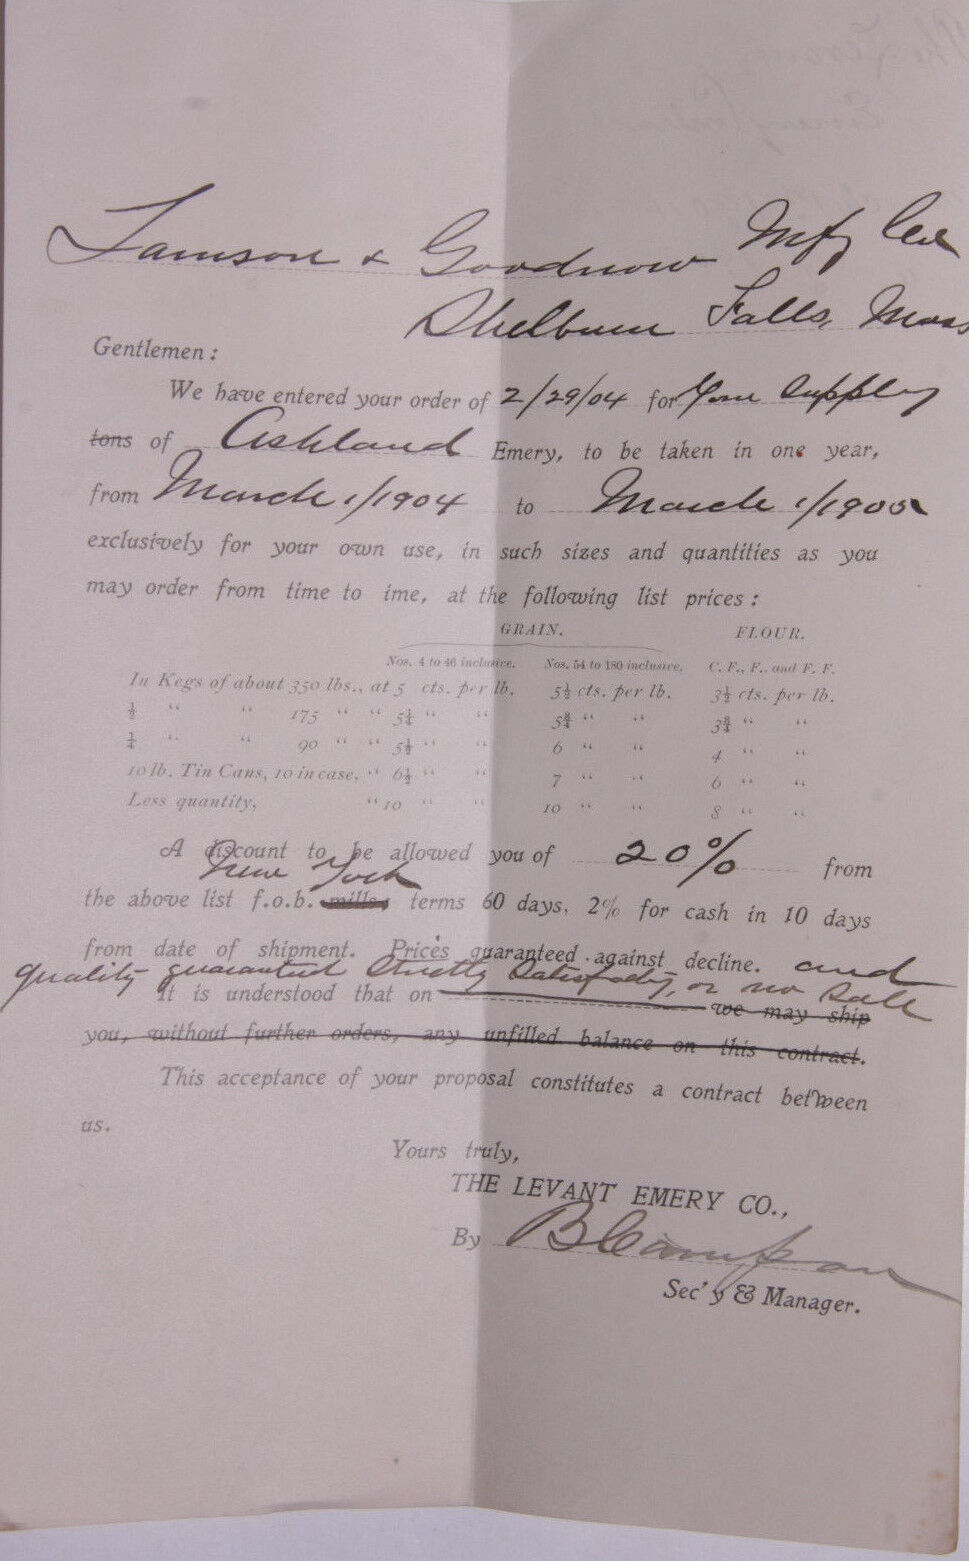 Lamson & Goodnow Mfg Co
Shelburn Falls, Mass
Gentlemen:
We have entered your order of 2/29/04 for Your Supply
tons of Ashland Emery, to be taken in one year,
from March 1/1904 to March 1/1905
exclusively for your own use, in such sizes and quantities as you
may order from time to ime, at the following list prices:
GRAIN. FLOUR.
Nos. 4 to 46 inclusive. Nos. 54 to 180 inclusive. C. F., F., and F. F.
In Kegs of about 350 lbs., at 5 cts. per lb. 5½ cts. per lb. 3½ cts. per lb.
½ " " 175 " " 5¼ " " 5¾ " " 3¾ " "
¼ " " 90 " " 5½ " " 6 " " 4 " "
10 lb. Tin Cans, 10 in case, " 6½ " " 7 " " 6 " "
Less quantity, " 10 " " 10 " " 8 " "
A discount to be allowed you of 20% from
New York
the above list f.o.b. mills, terms 60 days, 2% for cash in 10 days
from date of shipment. Prices guaranteed against decline. and
quality guaranteed Strictly Satisfactory, or no Sale
It is understood that on we may ship
you, without further orders, any unfilled balance on this contract.
This acceptance of your proposal constitutes a contract between
us.
Yours truly,
THE LEVANT EMERY CO.,
By
Sec'y & Manager.